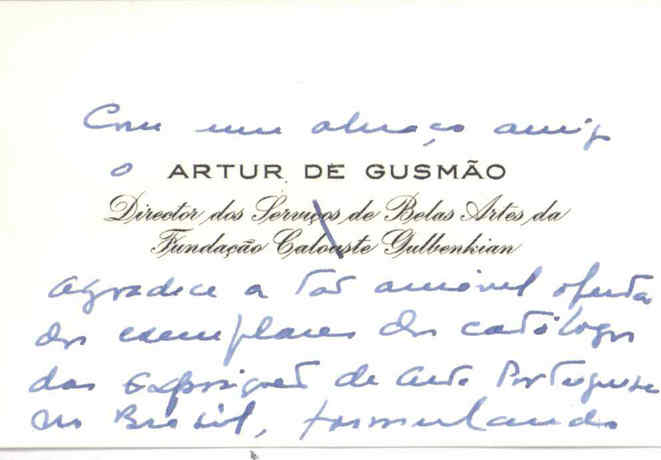 Com um abraço amigo
o ARTUR DE GUSMÃO
Director dos Serviços de Belas Artes da
Fundação Calouste Gulbenkian
agradece a tão amável oferta
dos exemplares dos catálogos
das Exposições de Arte Portuguesa
no Brasil, formulando